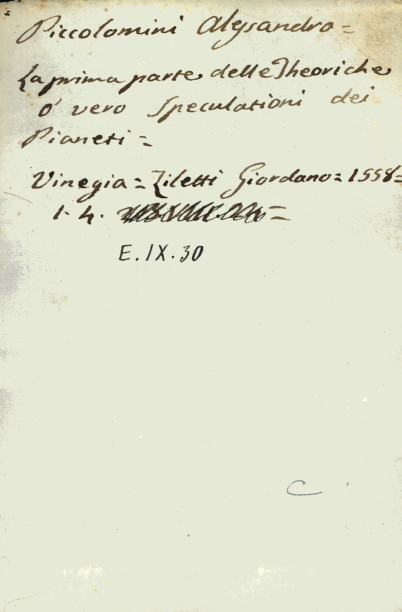 Piccolomini Alessandro=
La prima parte delle Theoriche
ò vero Speculationi dei
Pianeti=
Vinegia= Ziletti Giordano= 1558=
1. 4.
E.IX.30
C